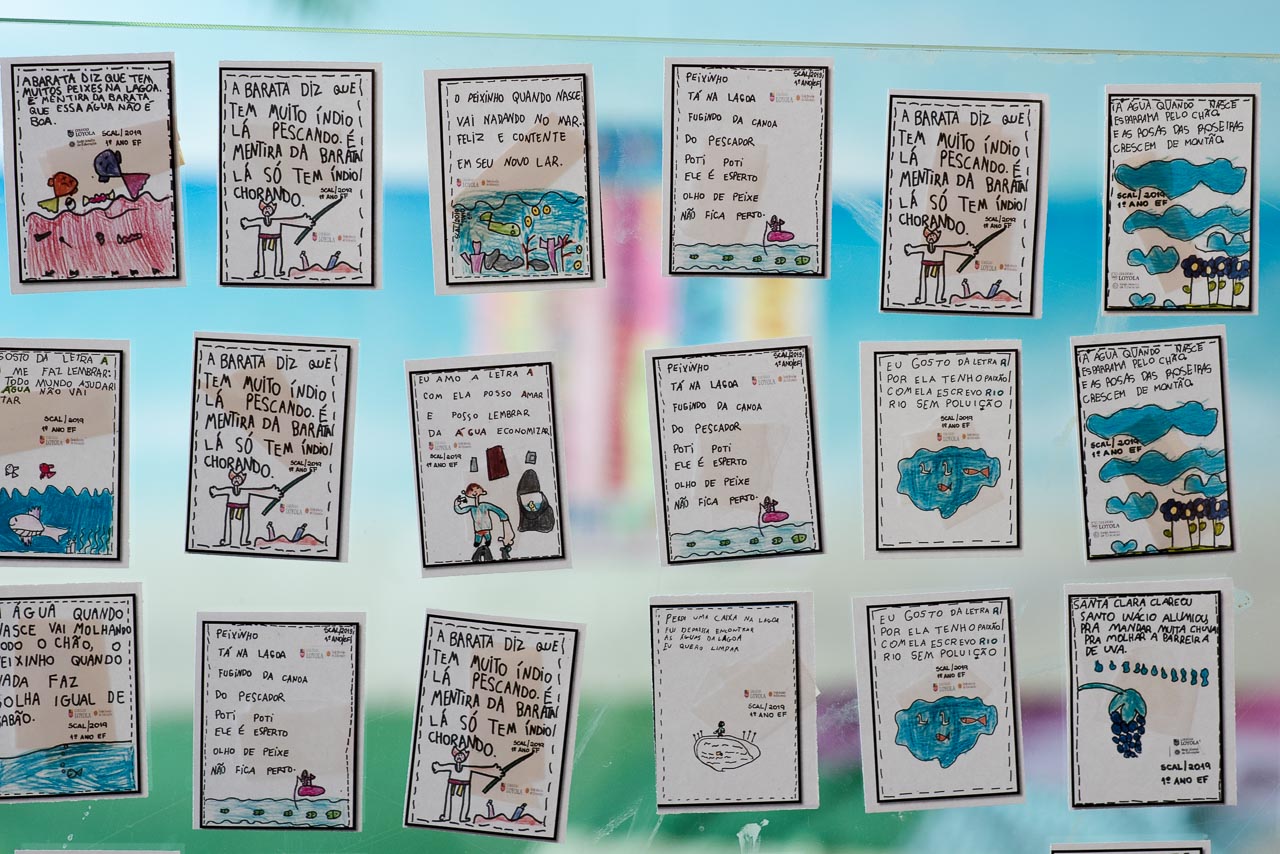 A BARATA DIZ QUE TEM
MUITOS PEIXES NA LAGOA.
É MENTIRA DA BARATA
QUE ESSA ÁGUA NÃO É
BOA.
LOYOLA
SCAL/2019
1º ANO EF
A BARATA DIZ QUE
TEM MUITO ÍNDIO
LÁ PESCANDO. É
MENTIRA DA BARATA
LÁ SÓ TEM ÍNDIO
CHORANDO.
SCAL/2019
1º ANO EF
LOYOLA
O PEIXINHO QUANDO NASCE
VAI NADANDO NO MAR.
FELIZ E CONTENTE
EM SEU NOVO LAR.
LOYOLA
PEIXINHO
SCAL/2019
1º ANO/EF
TÁ NA LAGOA
LOYOLA
FUGINDO DA CANOA
DO PESCADOR
POTI POTI
ELE É ESPERTO
OLHO DE PEIXE
NÃO FICA PERTO.
A BARATA DIZ QUE
TEM MUITO ÍNDIO
LÁ PESCANDO. É
MENTIRA DA BARATA
LÁ SÓ TEM ÍNDIO
CHORANDO.
SCAL/2019
1º ANO EF
LOYOLA
A ÁGUA QUANDO NASCE
ESPARRAMA PELO CHÃO
E AS ROSAS DAS ROSEIRAS
CRESCEM DE MONTÃO.
SCAL/2019
1º ANO EF
LOYOLA
OSTO DA LETRA A
ME FAZ LEMBRAR:
TODO MUNDO AJUDAR
ÁGUA NÃO VAI
TAR
SCAL/2019
1º ANO EF
LOYOLA
A BARATA DIZ QUE
TEM MUITO ÍNDIO
LÁ PESCANDO. É
MENTIRA DA BARATA
LÁ SÓ TEM ÍNDIO
CHORANDO.
SCAL/2019
1º ANO EF
LOYOLA
EU AMO A LETRA A
COM ELA POSSO AMAR
E POSSO LEMBRAR
DA ÁGUA ECONOMIZAR
LOYOLA
SCAL/2019
1º ANO EF
PEIXINHO
SCAL/2019
1º ANO/EF
TÁ NA LAGOA
LOYOLA
FUGINDO DA CANOA
DO PESCADOR
POTI POTI
ELE É ESPERTO
OLHO DE PEIXE
NÃO FICA PERTO.
EU GOSTO DA LETRA R
POR ELA TENHO PAIXÃO
COM ELA ESCREVO RIO
RIO SEM POLUIÇÃO
SCAL/2019
1º ANO EF
LOYOLA
A ÁGUA QUANDO NASCE
ESPARRAMA PELO CHÃO
E AS ROSAS DAS ROSEIRAS
CRESCEM DE MONTÃO.
SCAL/2019
1º ANO EF
LOYOLA
A ÁGUA QUANDO
NASCE VAI MOLHANDO
ODO O CHÃO, O
EIXINHO QUANDO
NADA FAZ
OLHA IGUAL DE
ABÃO.
SCAL/2019
1º ANO EF
LOYOLA
PEIXINHO
SCAL/2019
1º ANO/EF
TÁ NA LAGOA
LOYOLA
FUGINDO DA CANOA
DO PESCADOR
POTI POTI
ELE É ESPERTO
OLHO DE PEIXE
NÃO FICA PERTO.
A BARATA DIZ QUE
TEM MUITO ÍNDIO
LÁ PESCANDO. É
MENTIRA DA BARATA
LÁ SÓ TEM ÍNDIO
CHORANDO.
SCAL/2019
1º ANO EF
LOYOLA
PERDI UMA CAIXA NA LAGOA
FUI DEPRESSA ENCONTRAR
AS ÁGUAS DA LAGOA
EU QUERO LIMPAR
LOYOLA
SCAL/2019
1º ANO EF
EU GOSTO DA LETRA R
POR ELA TENHO PAIXÃO
COM ELA ESCREVO RIO
RIO SEM POLUIÇÃO
SCAL/2019
1º ANO EF
LOYOLA
SANTA CLARA CLAREOU
SANTO INÁCIO ALUMIOU
PRA MANDAR MUITA CHUVA
PRA MOLHAR A BARREIRA
DE UVA.
LOYOLA
SCAL/2019
1º ANO EF